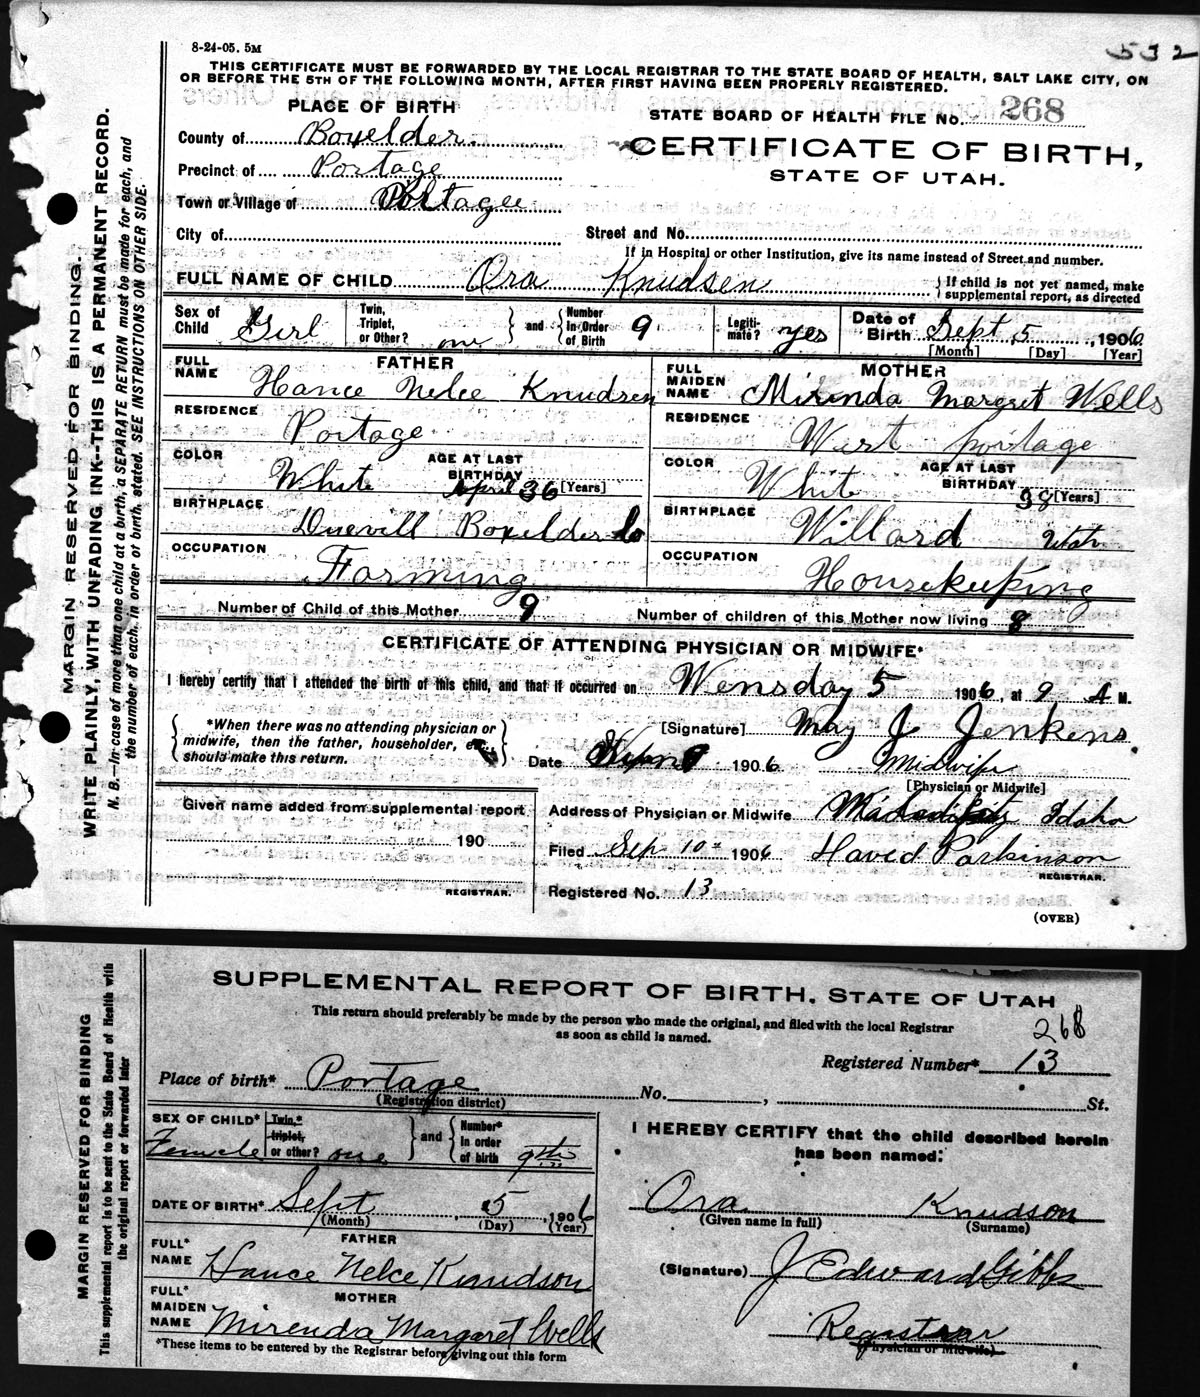 532
8-24-05. 5M
THIS CERTIFICATE MUST BE FORWARDED BY THE LOCAL REGISTRAR TO THE STATE BOARD OF HEALTH, SALT LAKE CITY, ON
OR BEFORE THE 5TH OF THE FOLLOWING MONTH, AFTER FIRST HAVING BEEN PROPERLY REGISTERED.
PLACE OF BIRTH
STATE BOARD OF HEALTH FILE No. 268
County of Boxelder.
CERTIFICATE OF BIRTH,
Precinct of Portage
STATE OF UTAH.
Town or Village of Portagee
City of
Street and No.
If in Hospital or other Institution, give its name instead of Street and number.
FULL NAME OF CHILD Ora Knudsen
If child is not yet named, make
supplemental report, as directed
Sex of Child Girl Twin, Triplet, or Other? one and Number In Order of Birth 9 Legiti-mate? yes Date of Birth Sept 5, 1906
[Month] [Day] [Year]
FATHER
MOTHER
FULL NAME Hance Nelce Knudsen
FULL MAIDEN NAME Mirinda Margret Wells
RESIDENCE Portage
RESIDENCE West portage
COLOR White AGE AT LAST BIRTHDAY April 36 [Years]
COLOR White AGE AT LAST BIRTHDAY 38 [Years]
BIRTHPLACE Duevill Boxelder Co
BIRTHPLACE Willard Utah
OCCUPATION Farming
OCCUPATION Housekeeping
Number of Child of this Mother 9
Number of children of this Mother now living 8
CERTIFICATE OF ATTENDING PHYSICIAN OR MIDWIFE*
I hereby certify that I attended the birth of this child, and that it occurred on Wensday 5 1906, at 9 A M.
*When there was no attending physician or
midwife, then the father, householder, etc.,
should make this return.
[Signature] May J Jenkens
Date 1906 Midwife
[Physician or Midwife]
Given name added from supplemental report
190
REGISTRAR.
Address of Physician or Midwife Idaho
Filed Sep 10 1906 Parkinson
REGISTRAR.
Registered No. 13
(OVER)
MARGIN RESERVED FOR BINDING.
WRITE PLAINLY, WITH UNFADING INK--THIS IS A PERMANENT RECORD.
N. B.--In case of more than one child at a birth, a SEPARATE RETURN must be made for each, and
the number of each, in order of birth, stated. SEE INSTRUCTIONS ON OTHER SIDE.
SUPPLEMENTAL REPORT OF BIRTH, STATE OF UTAH
This return should preferably be made by the person who made the original, and filed with the local Registrar
as soon as child is named.
268
Registered Number* 13
Place of birth* Portage No. , St.
(Registration district)
SEX OF CHILD* Female Twin,* triplet, or other? one and Number* In order of birth 9th
I HEREBY CERTIFY that the child described herein
has been named:
DATE OF BIRTH* Sept 5, 1906
(Month) (Day) (Year)
Ora Knudson
(Given name in full) (Surname)
FATHER
FULL* NAME Hance Nelce Knudson
(Signature) J Edward Gibbs
MOTHER
FULL* MAIDEN NAME Mirenda Margaret Wells
Registrar
(Physician or Midwife)
*These items to be entered by the Registrar before giving out this form
MARGIN RESERVED FOR BINDING
This supplemental report is to be sent to the State Board of Health with
the original report or forwarded later